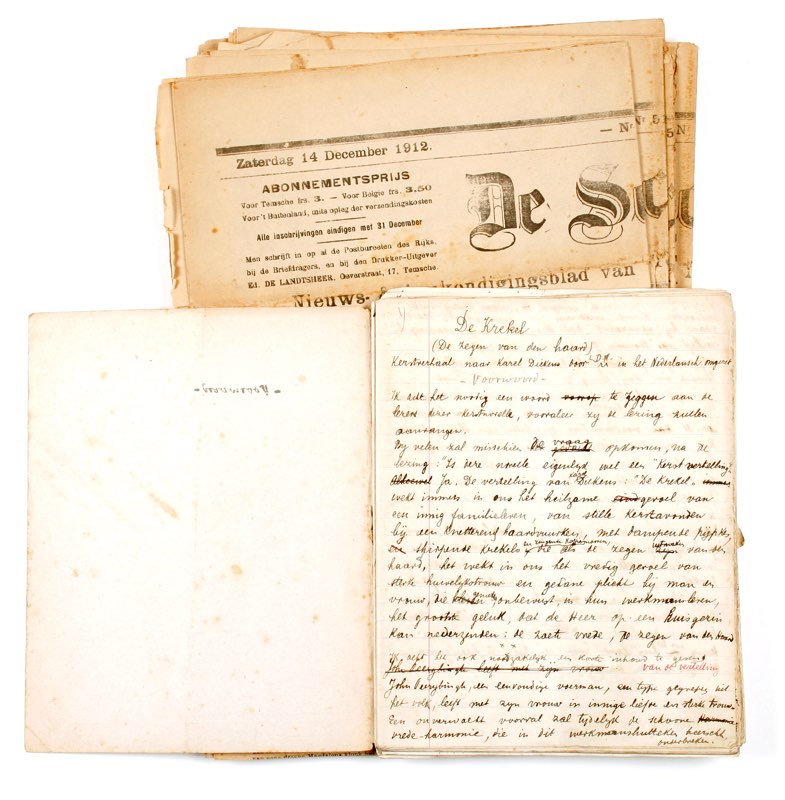 Zaterdag 14 December 1912.
— Nr. 51
ABONNEMENTSPRIJS
Voor Temsche frs. 3. — Voor Belgie frs. 3.50
Voor 't Buitenland, mits opleg der verzendingskosten
Alle inschrijvingen eindigen met 31 December
Men schrijft in op al de Postbureelen des Rijks,
bij de Briefdragers, en bij den Drukker-Uitgever
Ed. DE LANDTSHEER, Oeverstraat, 17, Temsche.
De Sc
Nieuws- kondigingsblad van
De Krekel
(De zegen van den haard)
Kerstverhaal naar Karel Dickens door in het Nederlandsch omgezet
- Voorwoord -
Ik acht het noodig een woord te zeggen aan de
lezers dezer kerstnovelle, vooraleer zij de lezing zullen
aanvangen.
Bij velen zal misschien de vraag opkomen, na de
lezing: "Is deze novelle eigenlijk wel een "Kerstvertelling"
Ja. De vertelling van Karel Dickens: "De Krekel"
wekt immers in ons het heilzame gevoel van
een innig familieleven, van stille kerstavonden
bij een knetterend haardvuurken, met dampende pijpke,
en zingende
en sjirpende krekels die als de zegen van den
haard, het wekt in ons het vredig gevoel van
sterk huwelijkstrouw en gedane plicht bij man en
vrouw, die onbewust, in hun werkmanleven,
het grootste geluk, dat de Heer op een huisgezin
kan nederzenden: de zaete vrede, de zegen van den Haard
ook noodzakelijk een korte inhoud te geven
van de vertelling
John Peerybingle leeft met zijn vrouw
John Peerybingle, een eenvoudige voerman, een type gegrepen uit
het volk, leeft met zijn vrouw in innige liefde en sterke trouw.
Een onverwacht voorval zal tijdelijk de schoone harmonie
vrede-harmonie, die in dit werkmanshutteken heerscht
onderbreken.